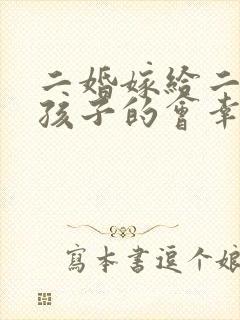 二婚嫁给二
孩子的會幸
寫本書逗个娘